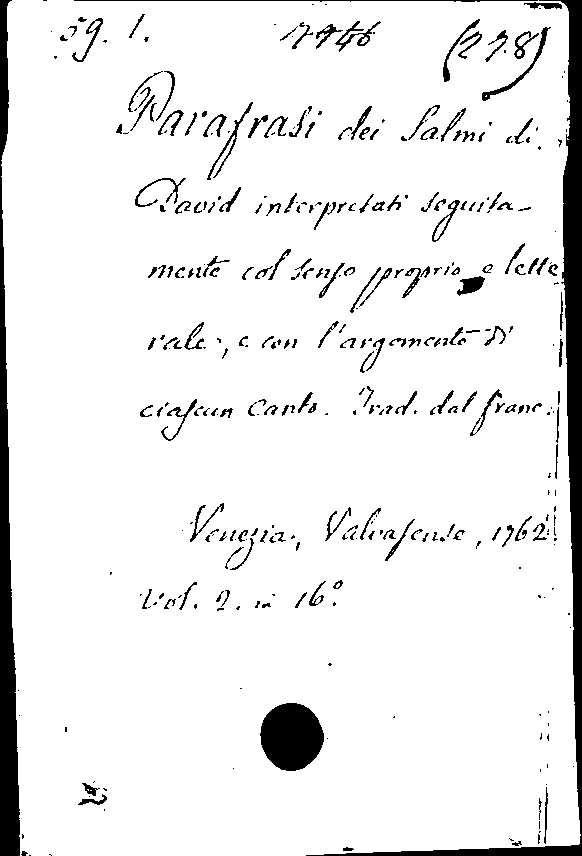 59. 1. 7746 (278)
Parafrasi dei Salmi di
David interpretati seguita-
mente col senso proprio e lette
rale, e con l'argomento di
ciascun Canto. Trad. dal franc.
Venezia, Valvasense, 1762
Vol. 2. in 16°.